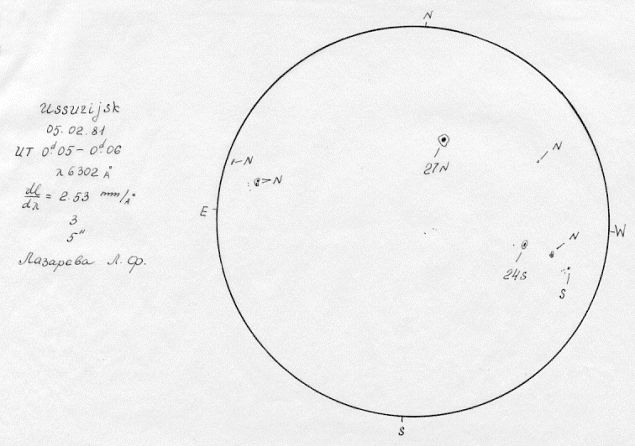 N
Ussurijsk
05.02.81
UT 0ᵈ.05 – 0ᵈ.06
λ 6302 Å
dl/dλ = 2.53 mm/Å
3
5"
Лазарева Л. Ф.
27N
N
N
N
E
W
N
24S
S
S